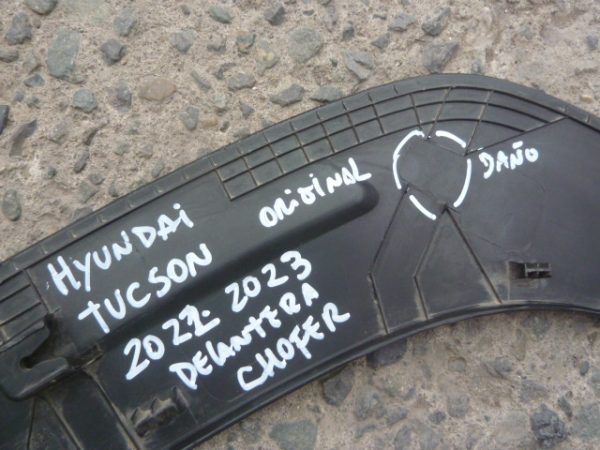 HYUNDAI
TUCSON ORIGINAL
2022 2023
DELANTERA
CHOFER
DAÑO